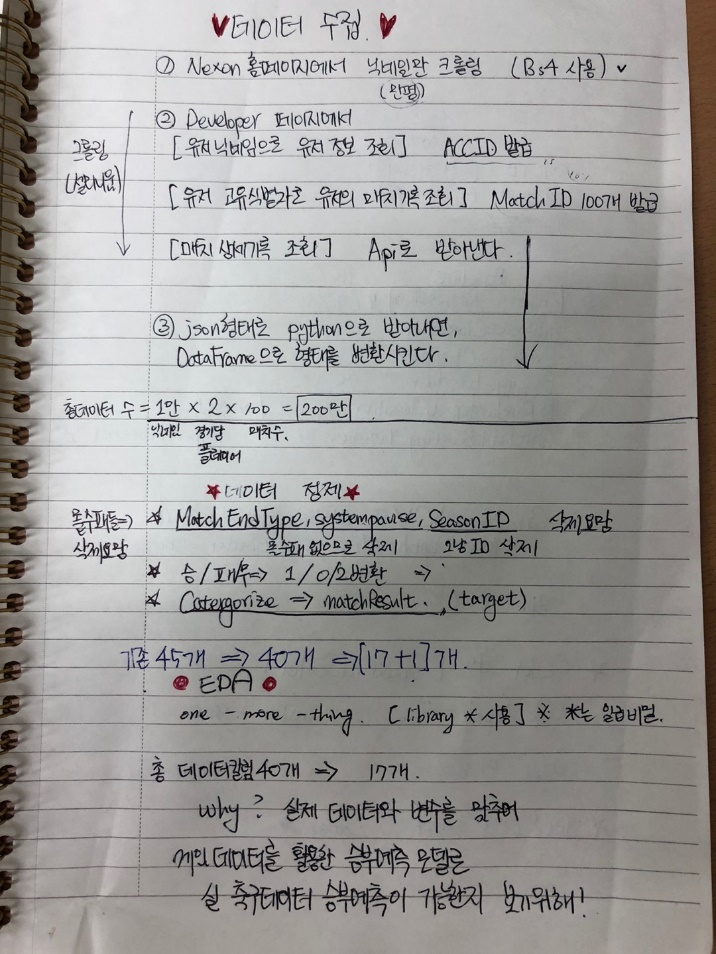 ♥데이터 수집.♥
① Nexon 홈페이지에서 닉네임만 크롤링 (Bs4 사용) ✓
(완명)
② Developer 페이지에서
크롤링
[유저닉네임으로 유저 정보 조회] ACCID 발급
[유저 고유식별자로 유저의 매치기록 조회] Match ID 100개 발급
[매치 상세기록 조회] Api로 받아낸다.
③ json형태로 python으로 받아내면,
DataFrame으로 형태를 변환시킨다.
총데이터 수 = 1만 × 2 × 100 = 200만
닉네임 경기당 매치수.
플레이어
★데이터 정제★
몰수패들=> ☆ MatchEndType, systempause, SeasonID 삭제요망
삭제요망 몰수패 없으므로 삭제 그냥 ID 삭제
★ 승/패/무=> 1/0/2변환 =>
☆ Catergorize => matchResult. (target)
기존 45개 => 40개 =>[17+1]개.
● EDA ●
one - more - thing. [library * 사용] ※ *는 일급비밀.
총 데이터칼럼 40개 => 17개.
why? 실제 데이터와 변수를 맞추어
게임데이터를 활용한 승부예측 모델로
실 축구데이터 승부예측이 가능한지 보기위해!